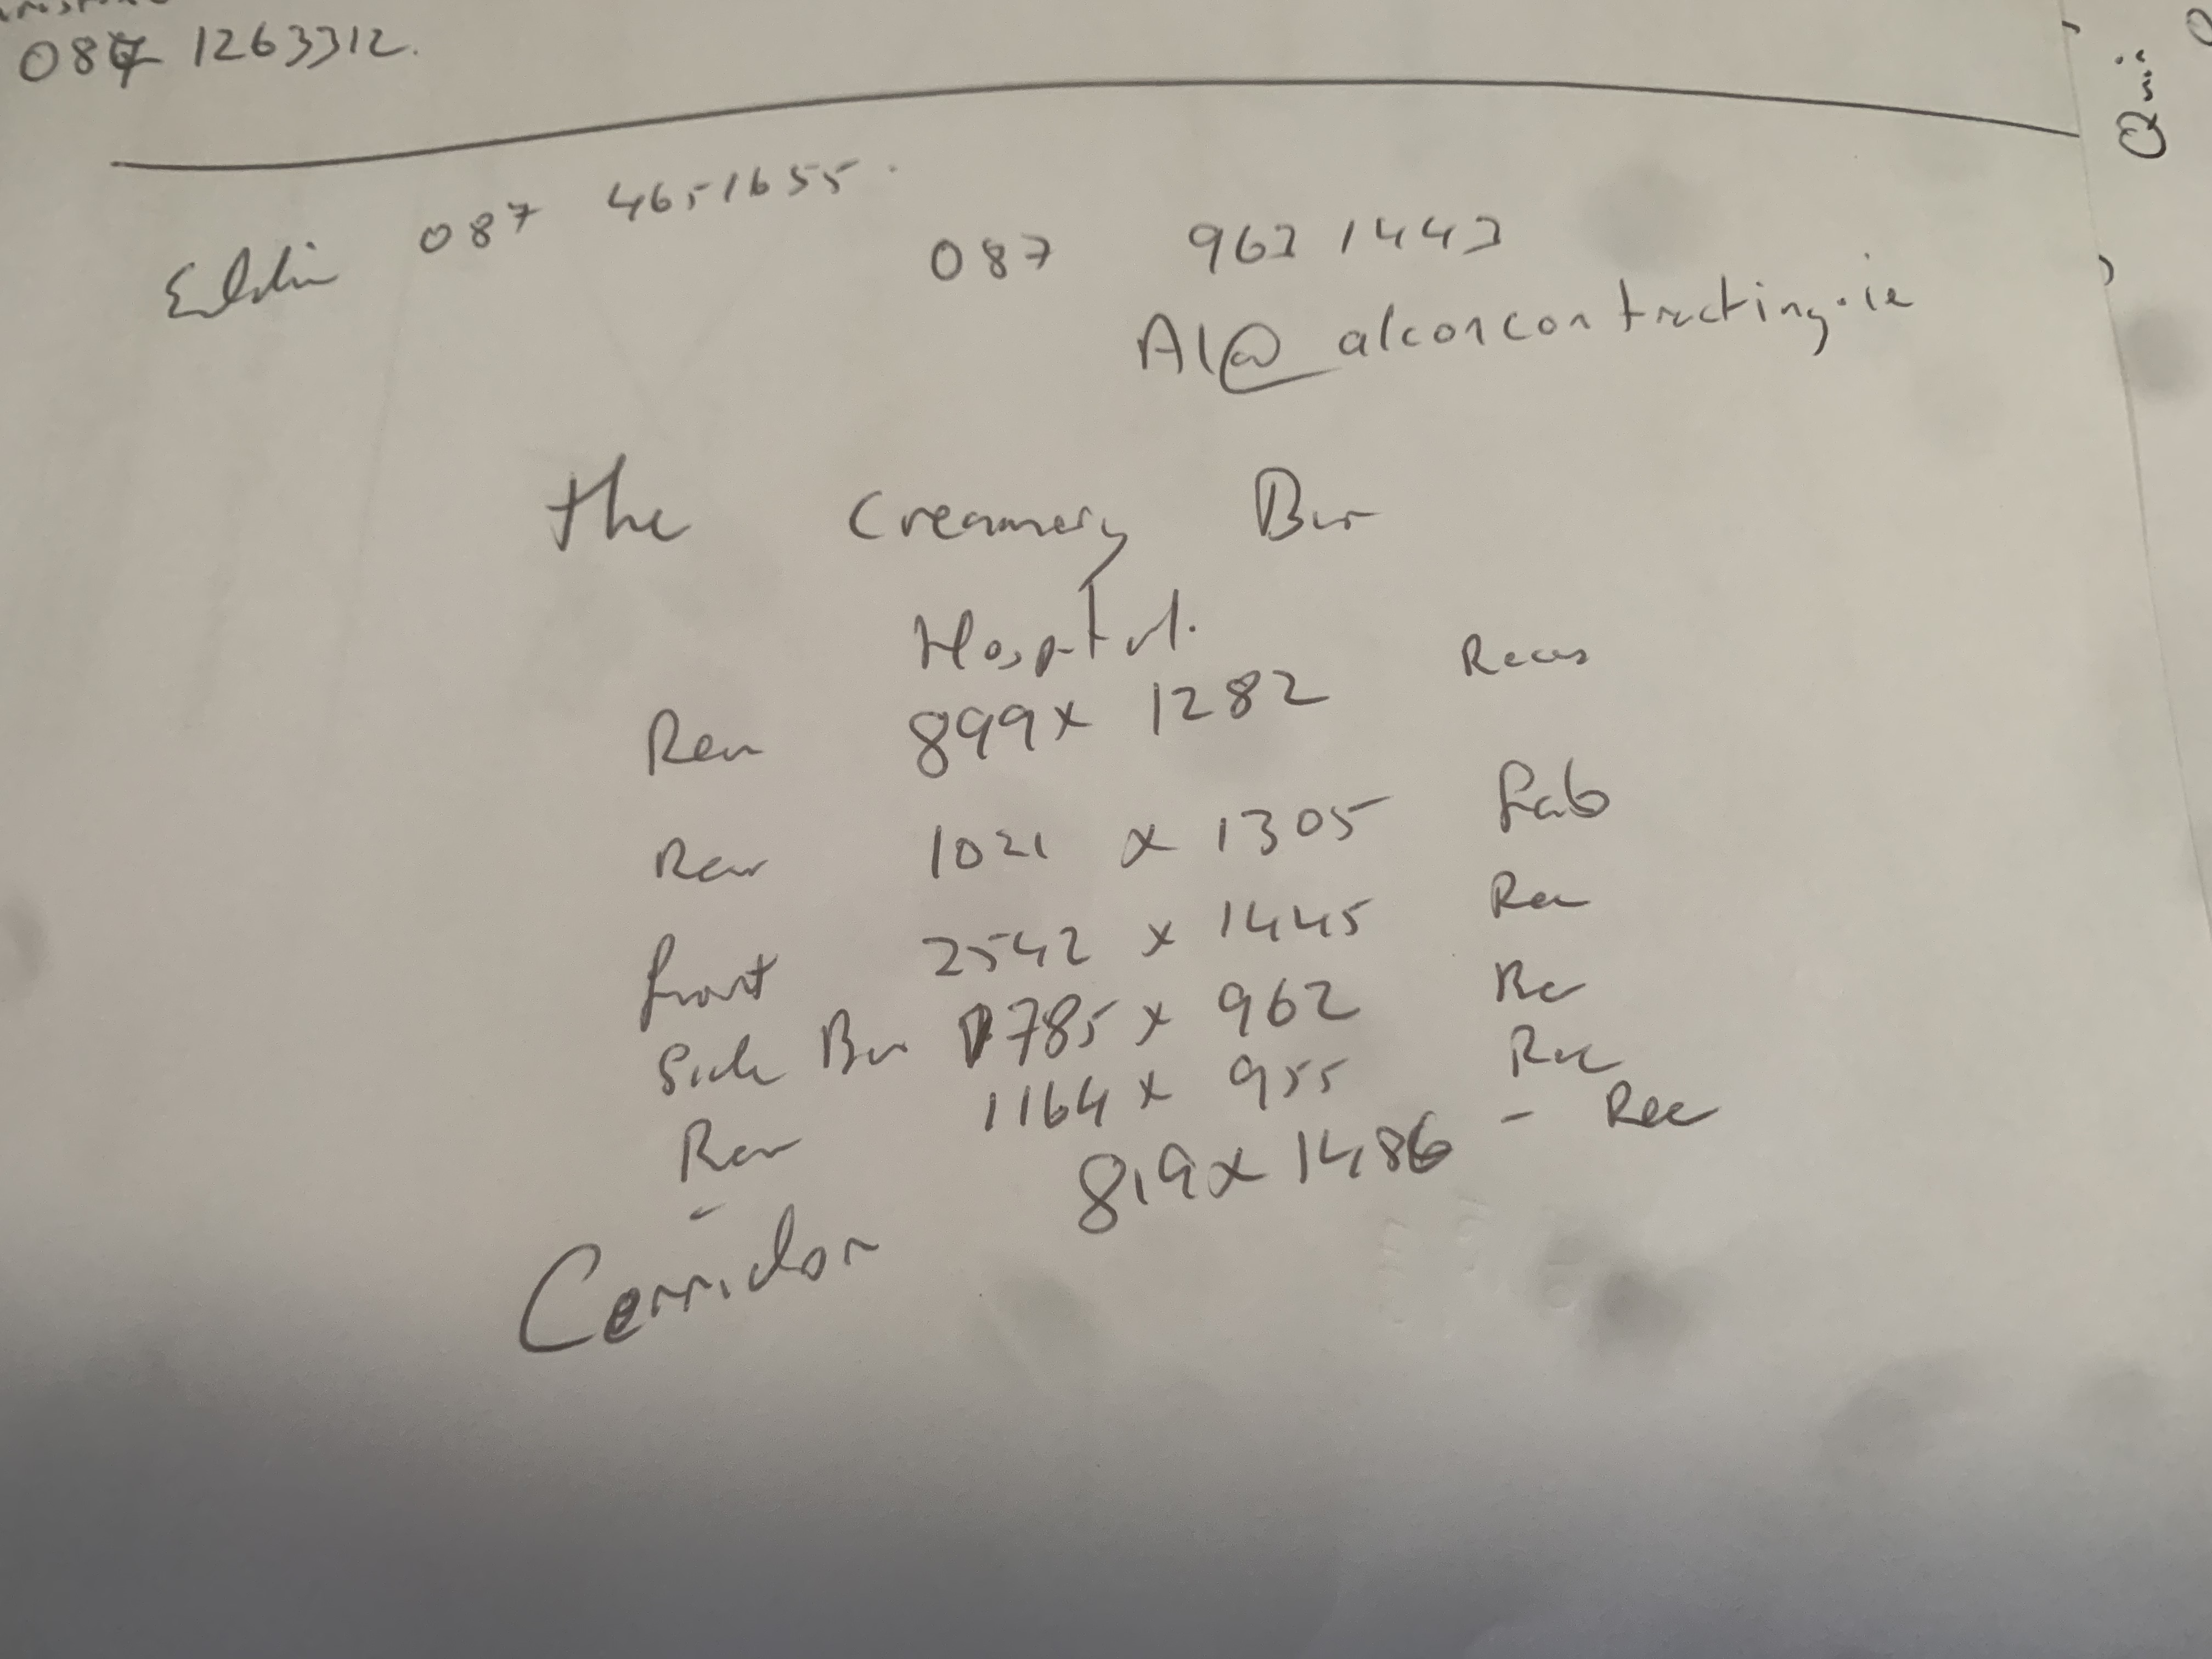 087 1263312.
Eddie 087 4651655.
087 963 1443
Al@alconcontracting.ie
the Creamery Bar
Hospital.
Rear 899 x 1282 Recess
Rear 1021 x 1305 Fab
front 2542 x 1445 Rec
Side Bar 1785 x 962 Rec
Rear 1164 x 955 Rec
Corridor 819 x 1486 - Rec